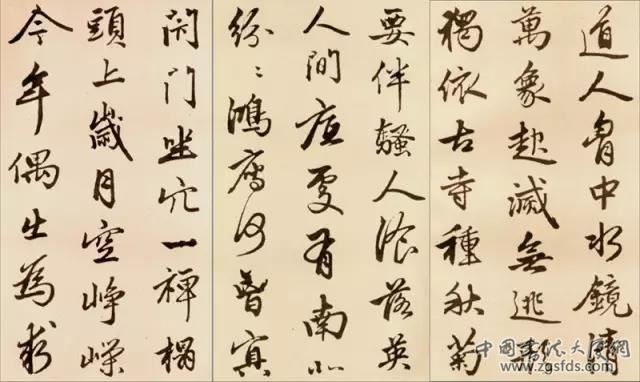 道人胷中水鏡清
萬象起滅無逃形
獨依古寺種秋菊
要伴騷人飡落英
人間底處有南北
紛〻鴻雁何曾冥
閉門坐穴一禪榻
頭上歲月空崢嶸
今年偶出為求
中國書法大師網
www.zgsfds.com